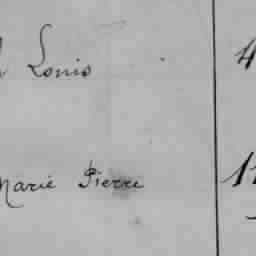 Louis 4
Marie Pierre 11